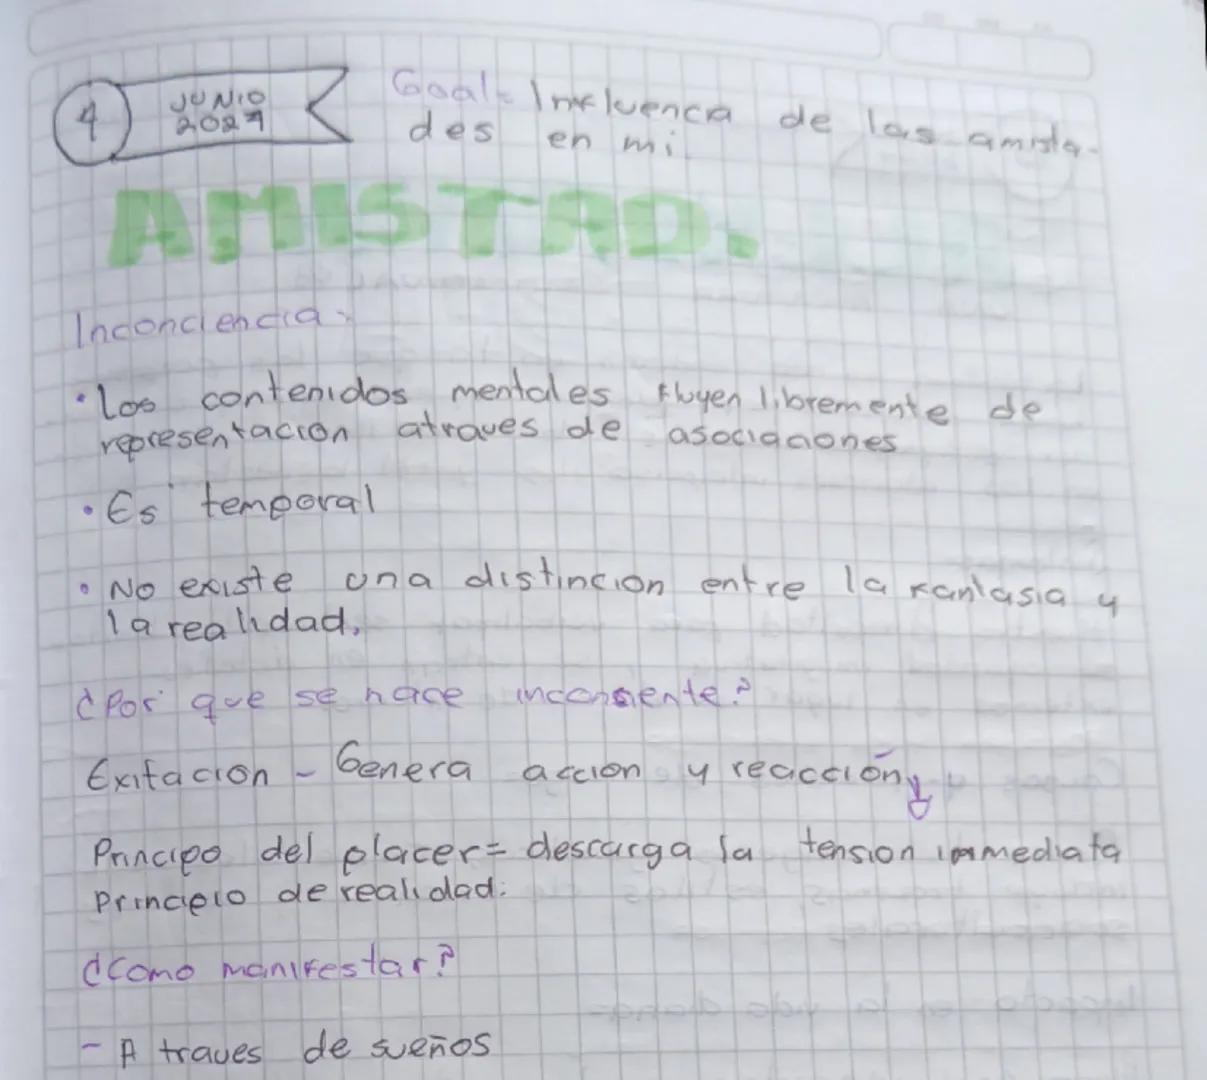 4 JUNIO
2024
Goal- Influenca de las amista-
des en mi
AMISTAD.
Inconciencia.
• Los contenidos mentales fluyen libremente de
representacion atraves de asociaciones
• Es temporal
• No existe una distincion entre la fantasia y
la realidad.
¿Por que se hace inconsiente?
Exitacion - Genera accion y reacción
Principo del placer= descarga la tension immediata
Principio de realidad:
¿Como manifestar?
- A traves de sueños